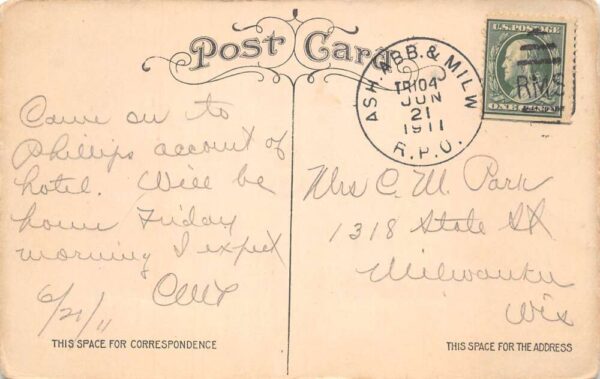 Post Card
ASH. ABB. & MILW
TR104
JUN
21
1911
R.P.O.
U.S. POSTAGE
RMS
ONE CENT
Came on to
Phillips account of
hotel. Will be
home Friday
morning I expect
6/21/11
Mrs C. M. Park
1318 State St
Milwaukee
Wis
THIS SPACE FOR CORRESPONDENCE
THIS SPACE FOR THE ADDRESS